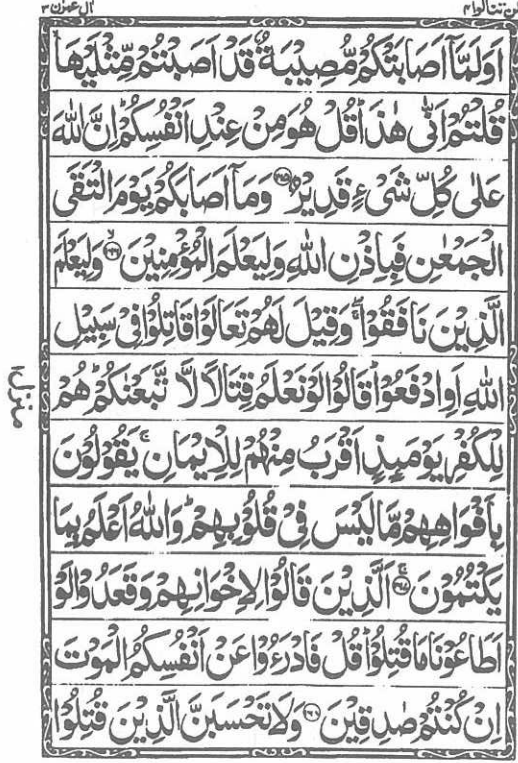 لن تنالوا ۴
اٰل عمرٰن ۳
اَوَلَمَّاۤ اَصَابَتْكُمْ مُّصِیْبَةٌ قَدْ اَصَبْتُمْ مِّثْلَیْهَا ۙ
قُلْتُمْ اَنّٰی هٰذَا ؕ قُلْ هُوَ مِنْ عِنْدِ اَنْفُسِكُمْ ؕ اِنَّ اللّٰهَ
عَلٰی كُلِّ شَیْءٍ قَدِیْرٌ ۝۱۶۵ وَمَاۤ اَصَابَكُمْ یَوْمَ الْتَقَی
الْجَمْعٰنِ فَبِاِذْنِ اللّٰهِ وَلِیَعْلَمَ الْمُؤْمِنِیْنَ ۝۱۶۶ ۙ وَلِیَعْلَمَ
الَّذِیْنَ نَافَقُوْا ۖۚ وَقِیْلَ لَهُمْ تَعَالَوْا قَاتِلُوْا فِیْ سَبِیْلِ
اللّٰهِ اَوِ ادْفَعُوْا ؕ قَالُوْا لَوْ نَعْلَمُ قِتَالًا لَّا تَّبَعْنٰكُمْ ؕ هُمْ
لِلْكُفْرِ یَوْمَىِٕذٍ اَقْرَبُ مِنْهُمْ لِلْاِیْمَانِ ۚ یَقُوْلُوْنَ
بِاَفْوَاهِهِمْ مَّا لَیْسَ فِیْ قُلُوْبِهِمْ ؕ وَاللّٰهُ اَعْلَمُ بِمَا
یَكْتُمُوْنَ ۝۱۶۷ ۚ اَلَّذِیْنَ قَالُوْا لِاِخْوَانِهِمْ وَقَعَدُوْا لَوْ
اَطَاعُوْنَا مَا قُتِلُوْا ؕ قُلْ فَادْرَءُوْا عَنْ اَنْفُسِكُمُ الْمَوْتَ
اِنْ كُنْتُمْ صٰدِقِیْنَ ۝۱۶۸ وَلَا تَحْسَبَنَّ الَّذِیْنَ قُتِلُوْا
منزل ۱